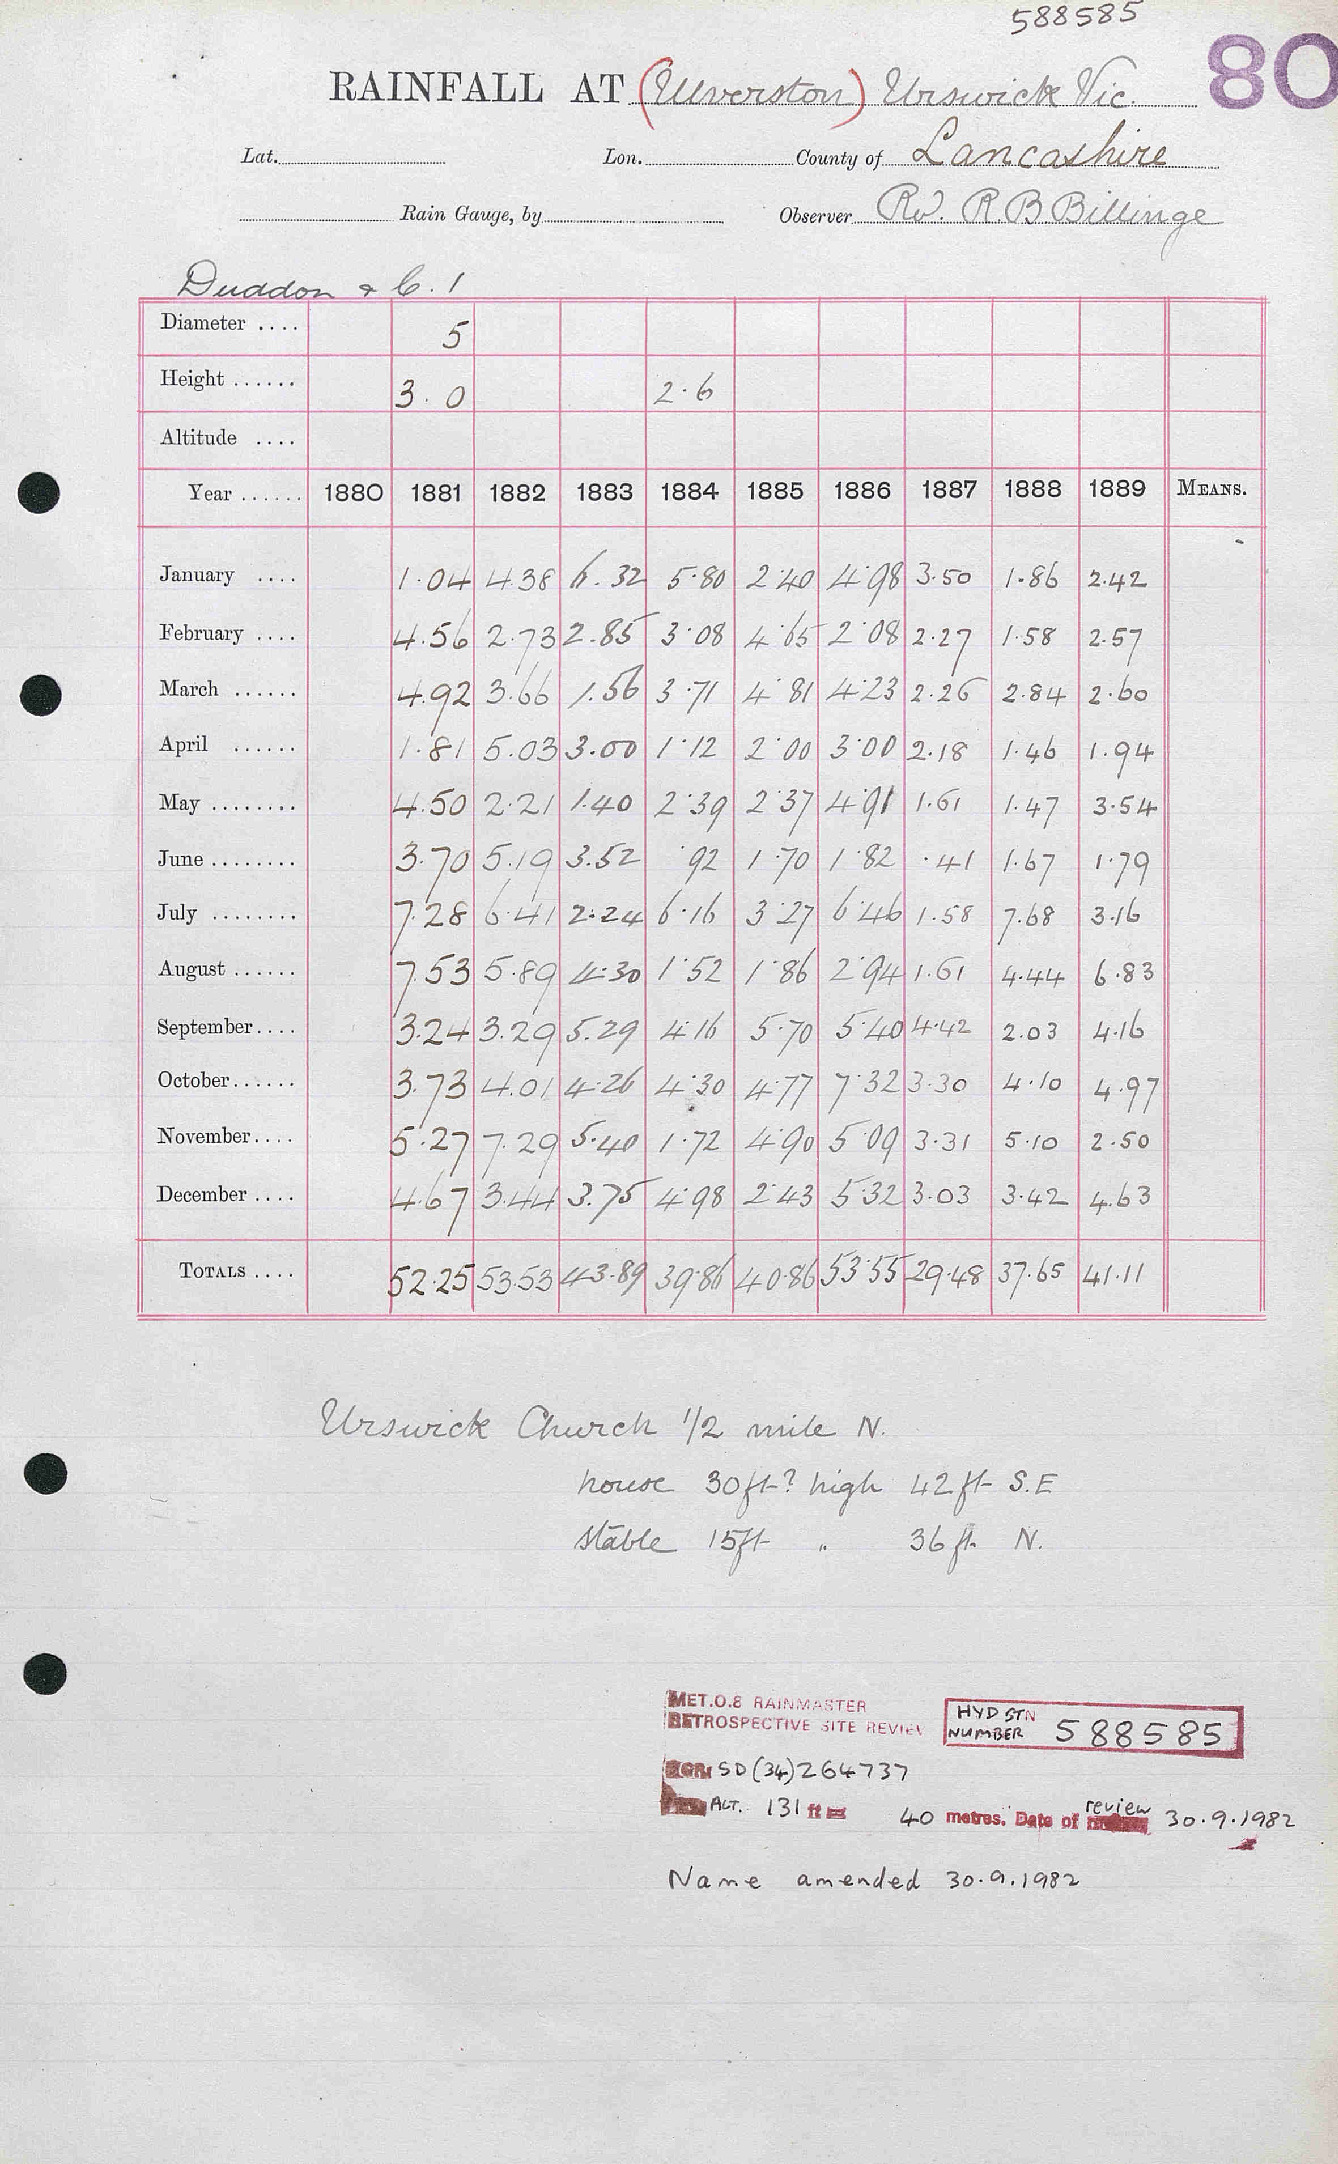 588585
80
RAINFALL AT (Ulverston) Urswick Vic.
Lat. Lon. County of Lancashire
Rain Gauge, by Observer Rev. R. B. Billinge
Duddon & C. 1
Diameter .... 5
Height ...... 3.0 2.6
Altitude ....
Year ...... 1880 1881 1882 1883 1884 1885 1886 1887 1888 1889 MEANS.
January .... 1.04 4.38 6.32 5.80 2.40 4.98 3.50 1.86 2.42
February .... 4.56 2.73 2.85 3.08 4.65 2.08 2.27 1.58 2.57
March ...... 4.92 3.66 1.56 3.71 4.81 4.23 2.26 2.84 2.60
April ...... 1.81 5.03 3.00 1.12 2.00 3.00 2.18 1.46 1.94
May ........ 4.50 2.21 1.40 2.39 2.37 4.91 1.61 1.47 3.54
June ........ 3.70 5.19 3.52 .92 1.70 1.82 .41 1.67 1.79
July ........ 7.28 6.41 2.24 6.16 3.27 6.46 1.58 7.68 3.16
August ...... 7.53 5.89 4.30 1.52 1.86 2.94 1.61 4.44 6.83
September.... 3.24 3.29 5.29 4.16 5.70 5.40 4.42 2.03 4.16
October...... 3.73 4.01 4.26 4.30 4.77 7.32 3.30 4.10 4.97
November.... 5.27 7.29 5.40 1.72 4.90 5.09 3.31 5.10 2.50
December .... 4.67 3.44 3.75 4.98 2.43 5.32 3.03 3.42 4.63
TOTALS .... 52.25 53.53 43.89 39.86 40.86 53.55 29.48 37.65 41.11
Urswick Church 1/2 mile N.
house 30ft? high 42ft S.E
stable 15ft " 36ft. N.
MET.O.8 RAINMASTER
RETROSPECTIVE SITE REVIEW
HYD STN
NUMBER 588585
NGR SD(34)264737
ALT. 131 ft = 40 metres. Date of review 30.9.1982
Name amended 30.9.1982